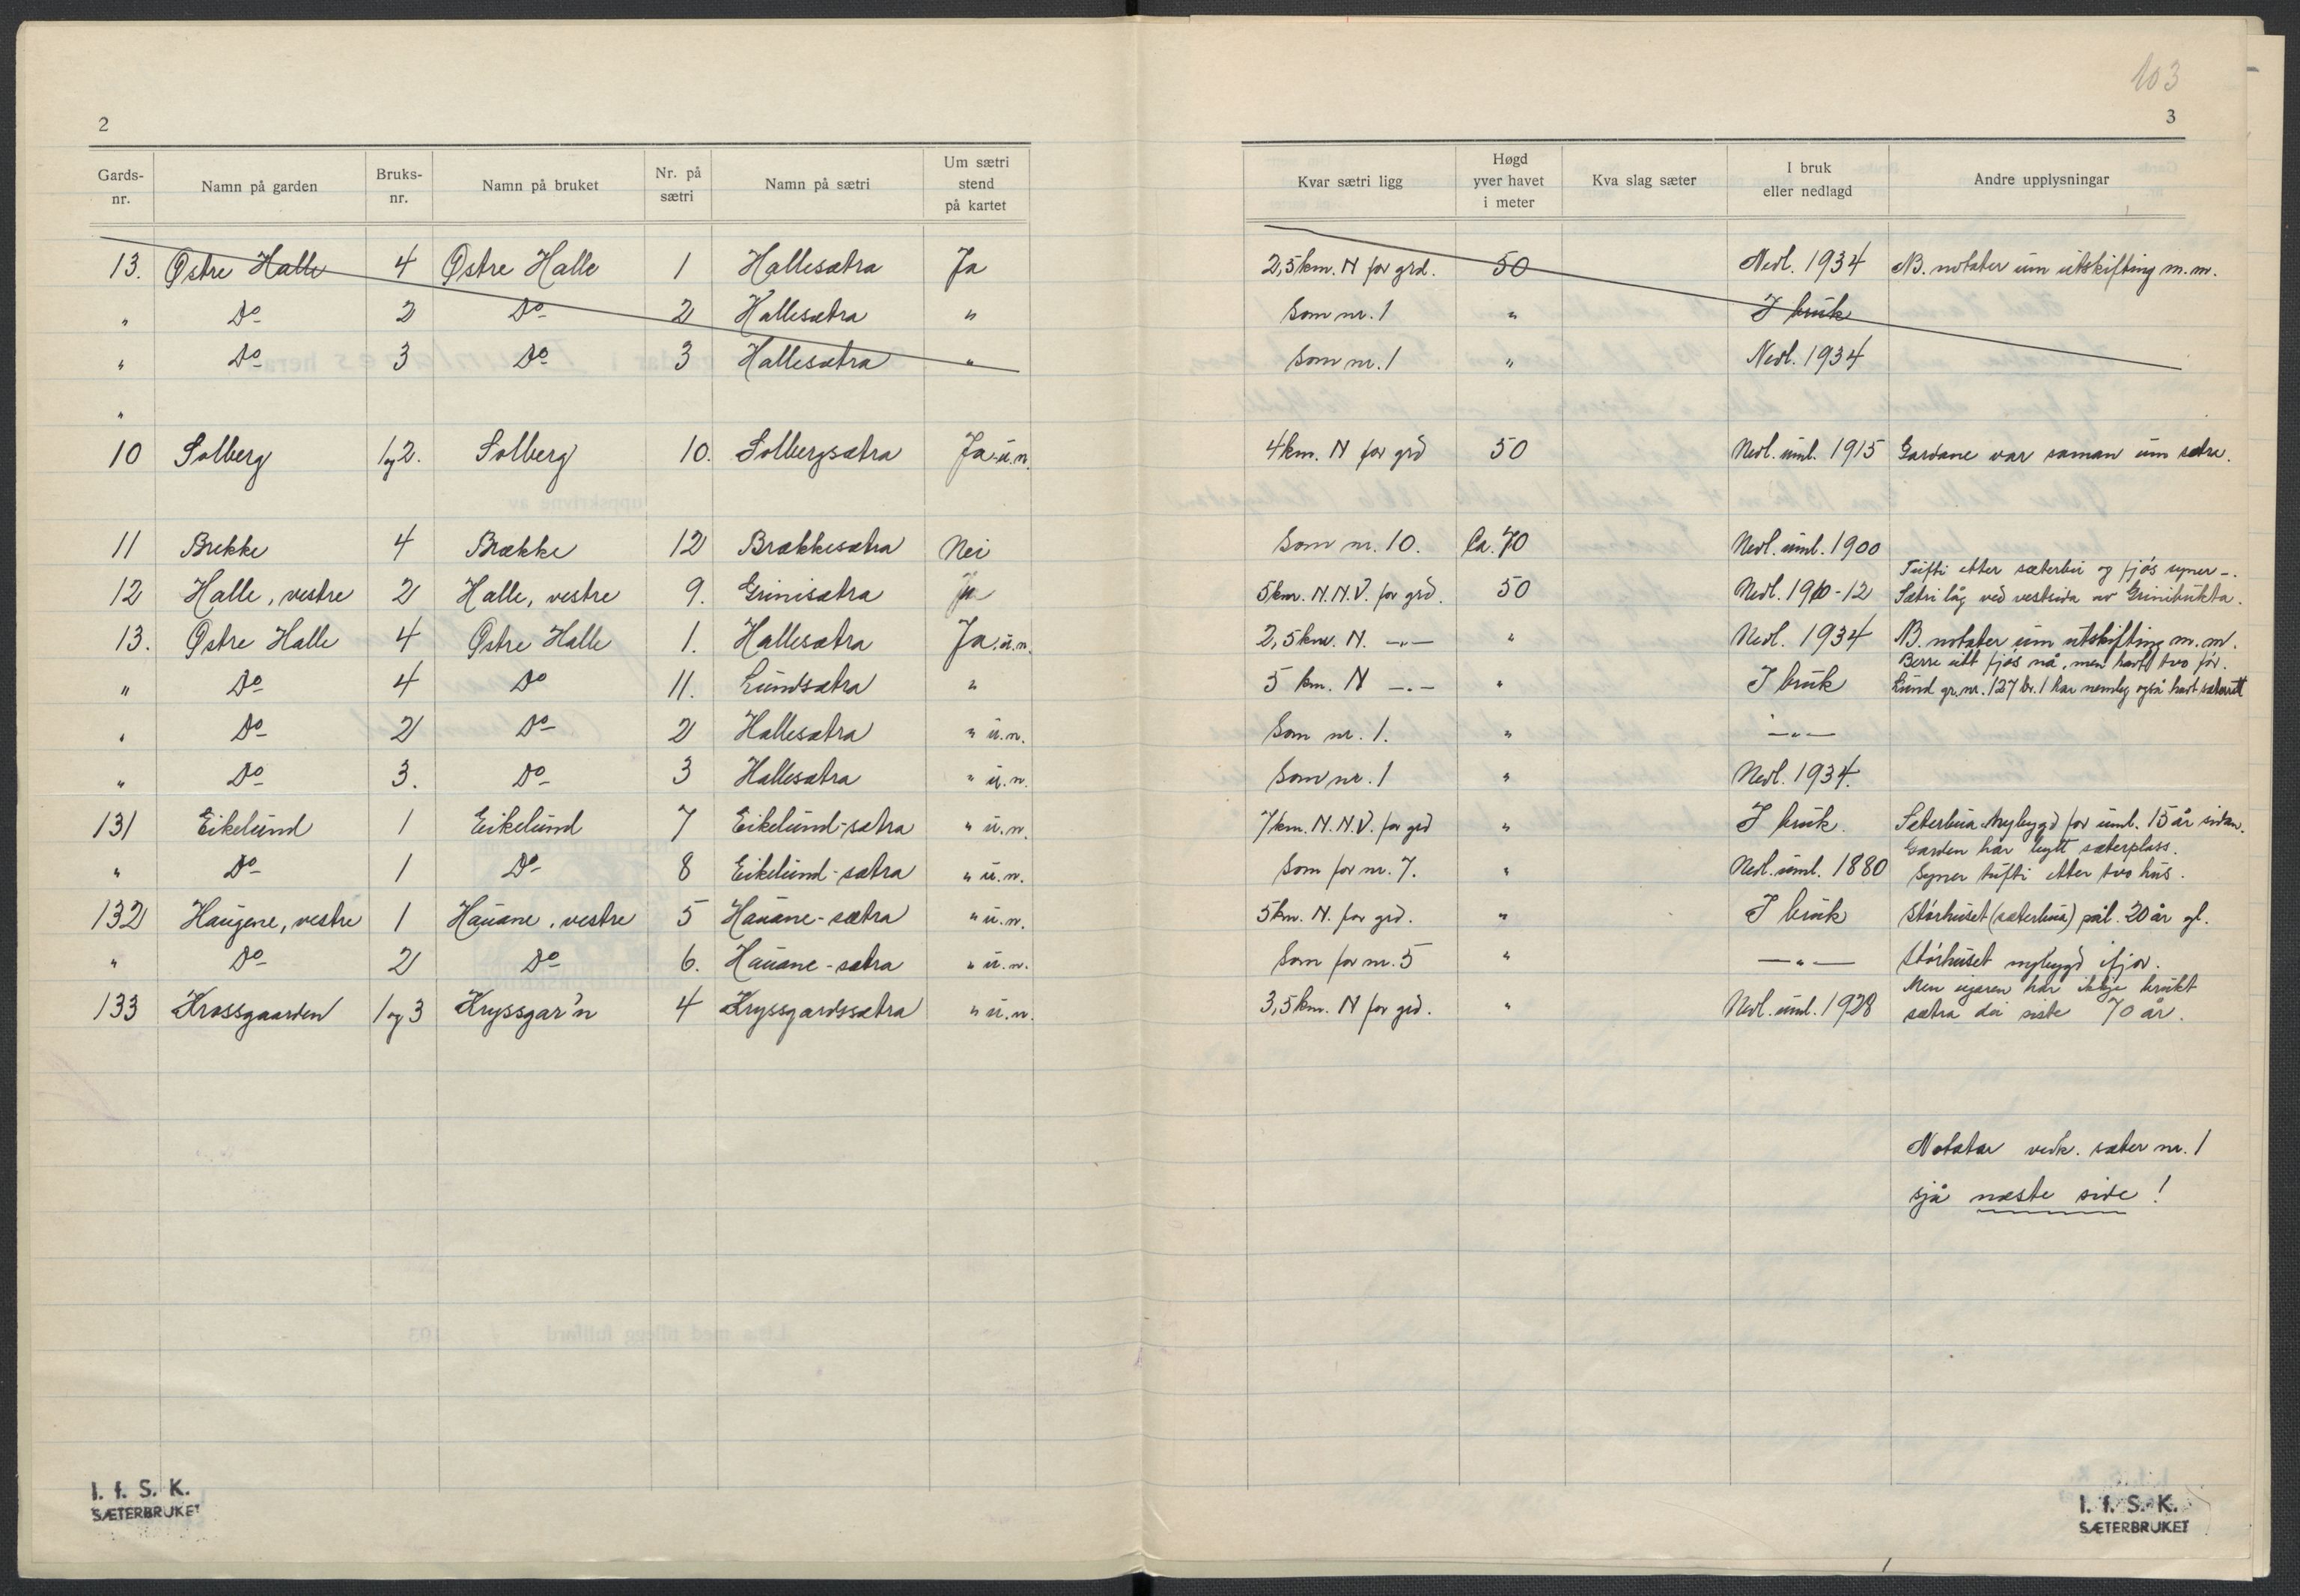 103
2
3
Gards-nr. Namn på garden Bruks-nr. Namn på bruket Nr. på sætri Namn på sætri Um sætri stend på kartet Kvar sætri ligg Høgd yver havet i meter Kva slag sæter I bruk eller nedlagd Andre upplysningar
13. Østre Halle 4 Østre Halle 1 Hallesætra Ja 2,5 km. N for grd. 50 Nedl. 1934 NB. notater um utskifting m.m.
" Do 2 Do 2 Hallesætra " Som nr. 1 " I bruk
" Do 3 Do 3 Hallesætra " Som nr. 1 " Nedl. 1934
"
10 Solberg 1 og 2. Solberg 10. Solbergsætra Ja u.n. 4 km. N for grd 50 Nedl. uml. 1915 Gardane var saman um sætra.
11 Brekke 4 Brække 12 Brækkesætra Nei Som nr. 10. Ca. 70 Nedl. uml. 1900
Tufti etter sæterbu og fjós syner -.
12 Halle, vestre 2 Halle, vestre 9. Grinisætra Ja 5 km. N.N.V. for grd. 50 Nedl. 1910-12 Sætri låg ved vestsida av Grinibukta.
13. Østre Halle 4 Østre Halle 1. Hallesætra Ja u.n. 2,5 km. N. -"- " Nedl. 1934 NB notater um utskifting m.m.
Berre eitt fjós nå, men havt tvo før.
" Do 4 Do 11. Lundsætra " 5 km. N -"- " I bruk Lund gr.nr. 127 br. 1 har nemleg også havt sæterrett
" Do 2 Do 2 Hallesætra " u.n. Som nr. 1. " -"-
" Do 3. Do 3 Hallesætra " u.n. Som nr. 1 " Nedl. 1934.
131 Eikelund 1 Eikelund 7 Eikelund-sætra " u.n. 7 km. N.N.V. for grd " I bruk. Seterbua nybygd for uml. 15 år sidan.
Garden har bytt sæterplass.
" Do 1 Do 8 Eikelund-sætra " u.n. Som for nr. 7. " Nedl. uml. 1880 Syner tufti etter tvo hus.
132 Haugene, vestre 1 Hauane, vestre 5 Hauane-sætra " u.n. 5 km. N. for grd. " I bruk Stórhuset (sæterbua) pål. 20 år gl.
" Do 2 Do 6. Hauane-sætra " u.n. Som for nr. 5 " -"- Stórhuset nybygd ifjor.
Men eigaren har ikkje brukt
133 Krossgaarden 1 og 3 Kryssgar'n 4 Kryssgardssætra " u.n. 3,5 km. N for grd. " Nedl. uml. 1928 sætra dei siste 70 år.
Notatar vedk. sæter nr. 1
sjå næste side!
I. f. S. K.
SÆTERBRUKET
I. f. S. K.
SÆTERBRUKET